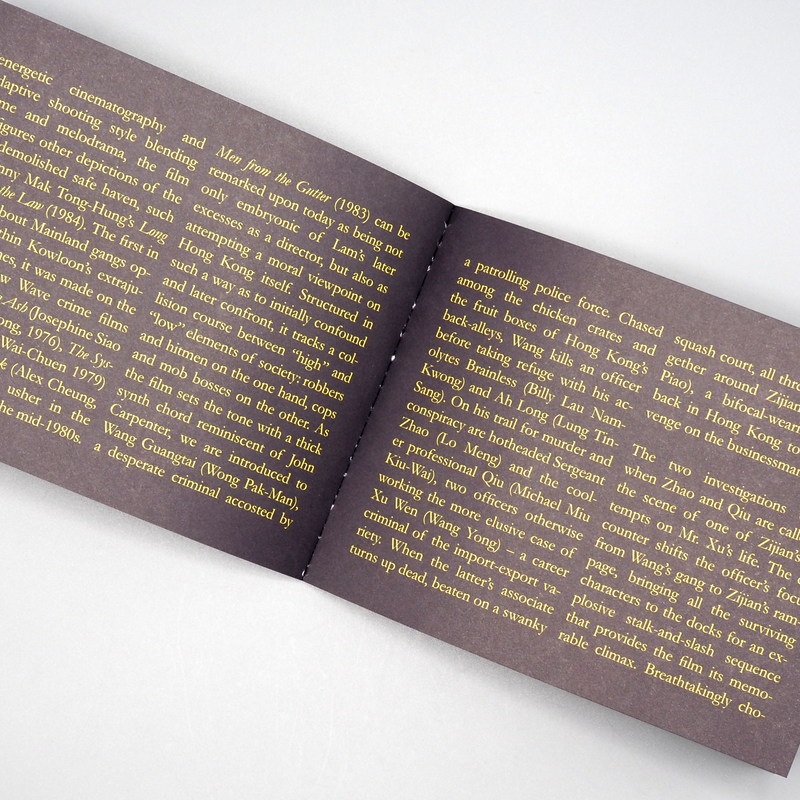 energetic cinematography and
daptive shooting style blending
me and melodrama, the film
igures other depictions of the
demolished safe haven, such
nny Mak Tong-Hung's Long
the Law (1984). The first in
bout Mainland gangs op-
thin Kowloon's extraju-
nes, it was made on the
w Wave crime films
e Ash (Josephine Siao
ong, 1976), The Sys-
Wai-Chuen 1979)
k (Alex Cheung,
usher in the
he mid-1980s.
Men from the Gutter (1983) can be
remarked upon today as being not
only embryonic of Lam's later
excesses as a director, but also as
attempting a moral viewpoint on
Hong Kong itself. Structured in
such a way as to initially confound
and later confront, it tracks a col-
lision course between "high" and
"low" elements of society: robbers
and hitmen on the one hand, cops
and mob bosses on the other. As
the film sets the tone with a thick
synth chord reminiscent of John
Carpenter, we are introduced to
Wang Guangtai (Wong Pak-Man),
a desperate criminal accosted by
a patrolling police force. Chased
among the chicken crates and
the fruit boxes of Hong Kong's
back-alleys, Wang kills an officer
before taking refuge with his ac-
olytes Brainless (Billy Lau Nam-
Kwong) and Ah Long (Lung Tin-
Sang). On his trail for murder and
conspiracy are hotheaded Sergeant
Zhao (Lo Meng) and the cool-
er professional Qiu (Michael Miu
Kiu-Wai), two officers otherwise
working the more elusive case of
Xu Wen (Wang Yong) – a career
criminal of the import-export va-
riety. When the latter's associate
turns up dead, beaten on a swanky
squash court, all thre
gether around Zijian
Piao), a bifocal-wearin
back in Hong Kong to
venge on the businessman
The two investigations
when Zhao and Qiu are calle
the scene of one of Zijian's
tempts on Mr. Xu's life. The e
counter shifts the officer's focu
from Wang's gang to Zijian's ram-
page, bringing all the surviving
characters to the docks for an ex-
plosive stalk-and-slash sequence
that provides the film its memo-
rable climax. Breathtakingly cho-